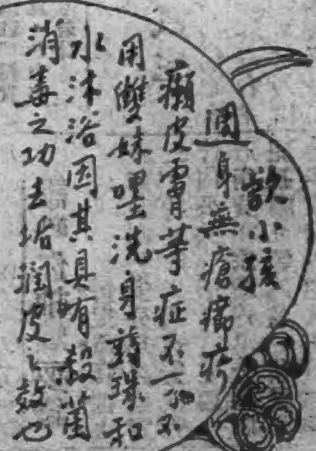 歡小孩
週身無瘡癤疥
癩皮膚等症不可不
用雙妹嚜洗身藥珠和
水沐浴因其具有殺菌
消毒之功去垢潤皮之效也